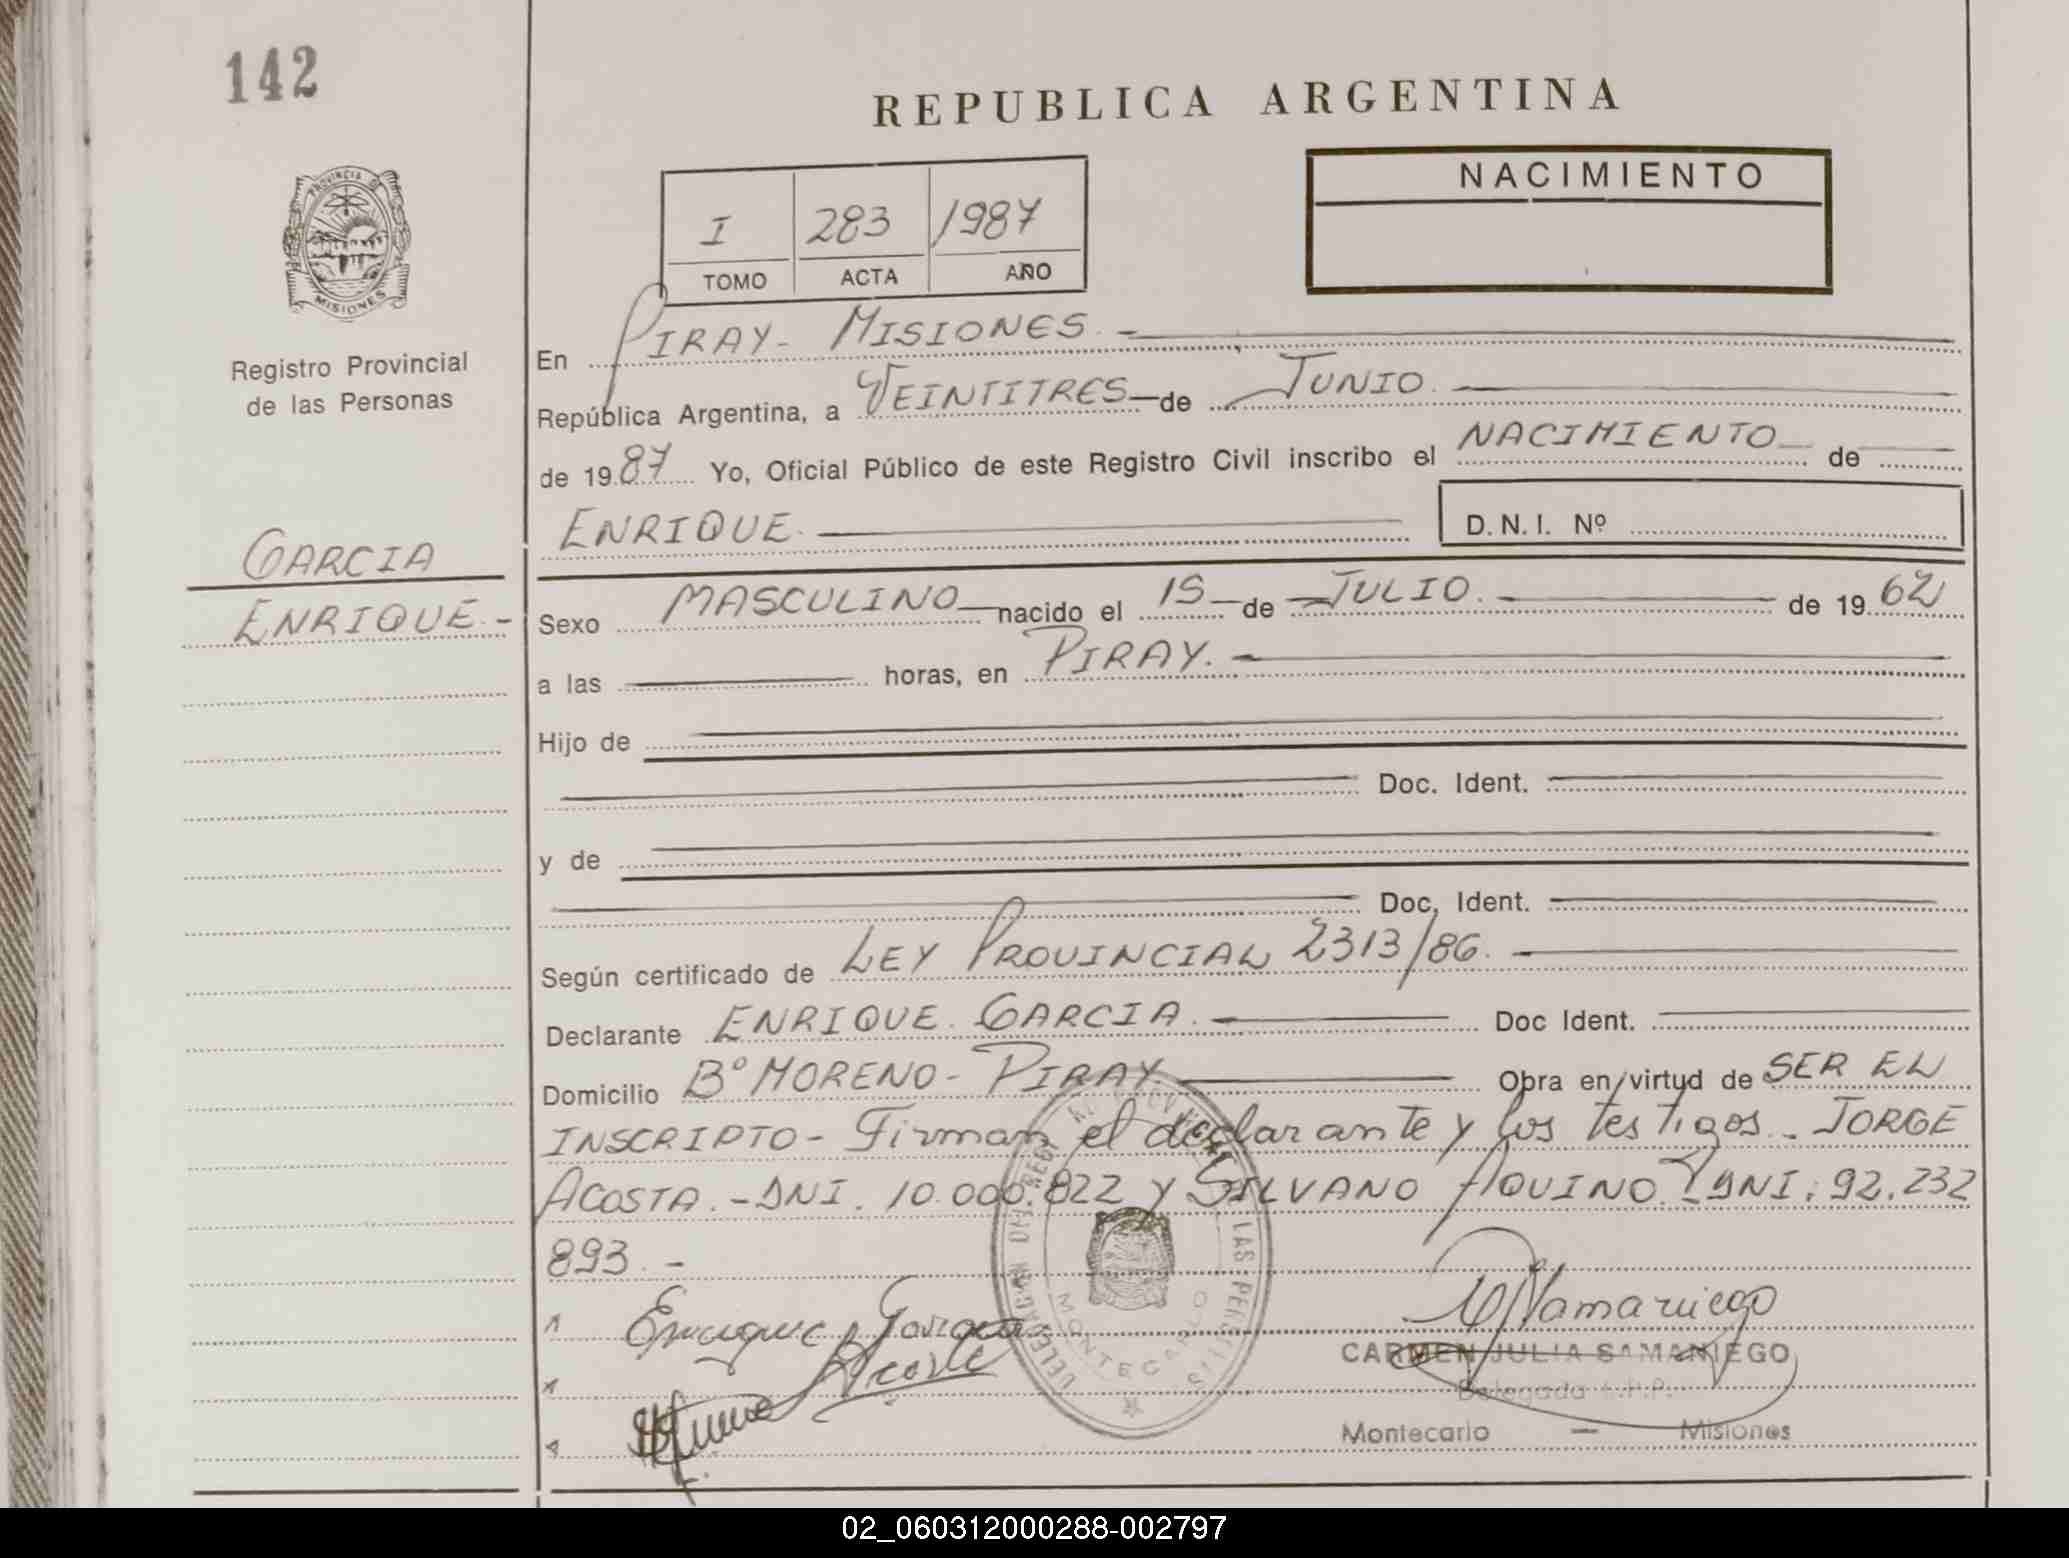 142
REPUBLICA ARGENTINA
PROVINCIA DE
MISIONES
I 283 1987
TOMO ACTA AÑO
NACIMIENTO
Registro Provincial
de las Personas
GARCIA
ENRIQUE.-
En PIRAY - MISIONES.-
República Argentina, a VEINTITRES de JUNIO.
de 1987 Yo, Oficial Público de este Registro Civil inscribo el NACIMIENTO de
ENRIQUE. D.N.I. Nº
Sexo MASCULINO nacido el 15 de JULIO. de 1962
a las horas, en PIRAY.
Hijo de
Doc. Ident.
y de
Doc. Ident.
Según certificado de LEY PROVINCIAL 2313/86.
Declarante ENRIQUE. GARCIA. Doc Ident.
Domicilio Bº MORENO - PIRAY. Obra en virtud de SER EL
INSCRIPTO - Firman el declarante y los testigos - JORGE
ACOSTA. - DNI. 10.000.822 y SILVANO AQUINO. DNI: 92.232
893.-
Enrique Garcia
Acosta
CARMEN JULIA SAMANIEGO
Delegada
Montecarlo — Misiones
MONTECARLO
02_060312000288-002797